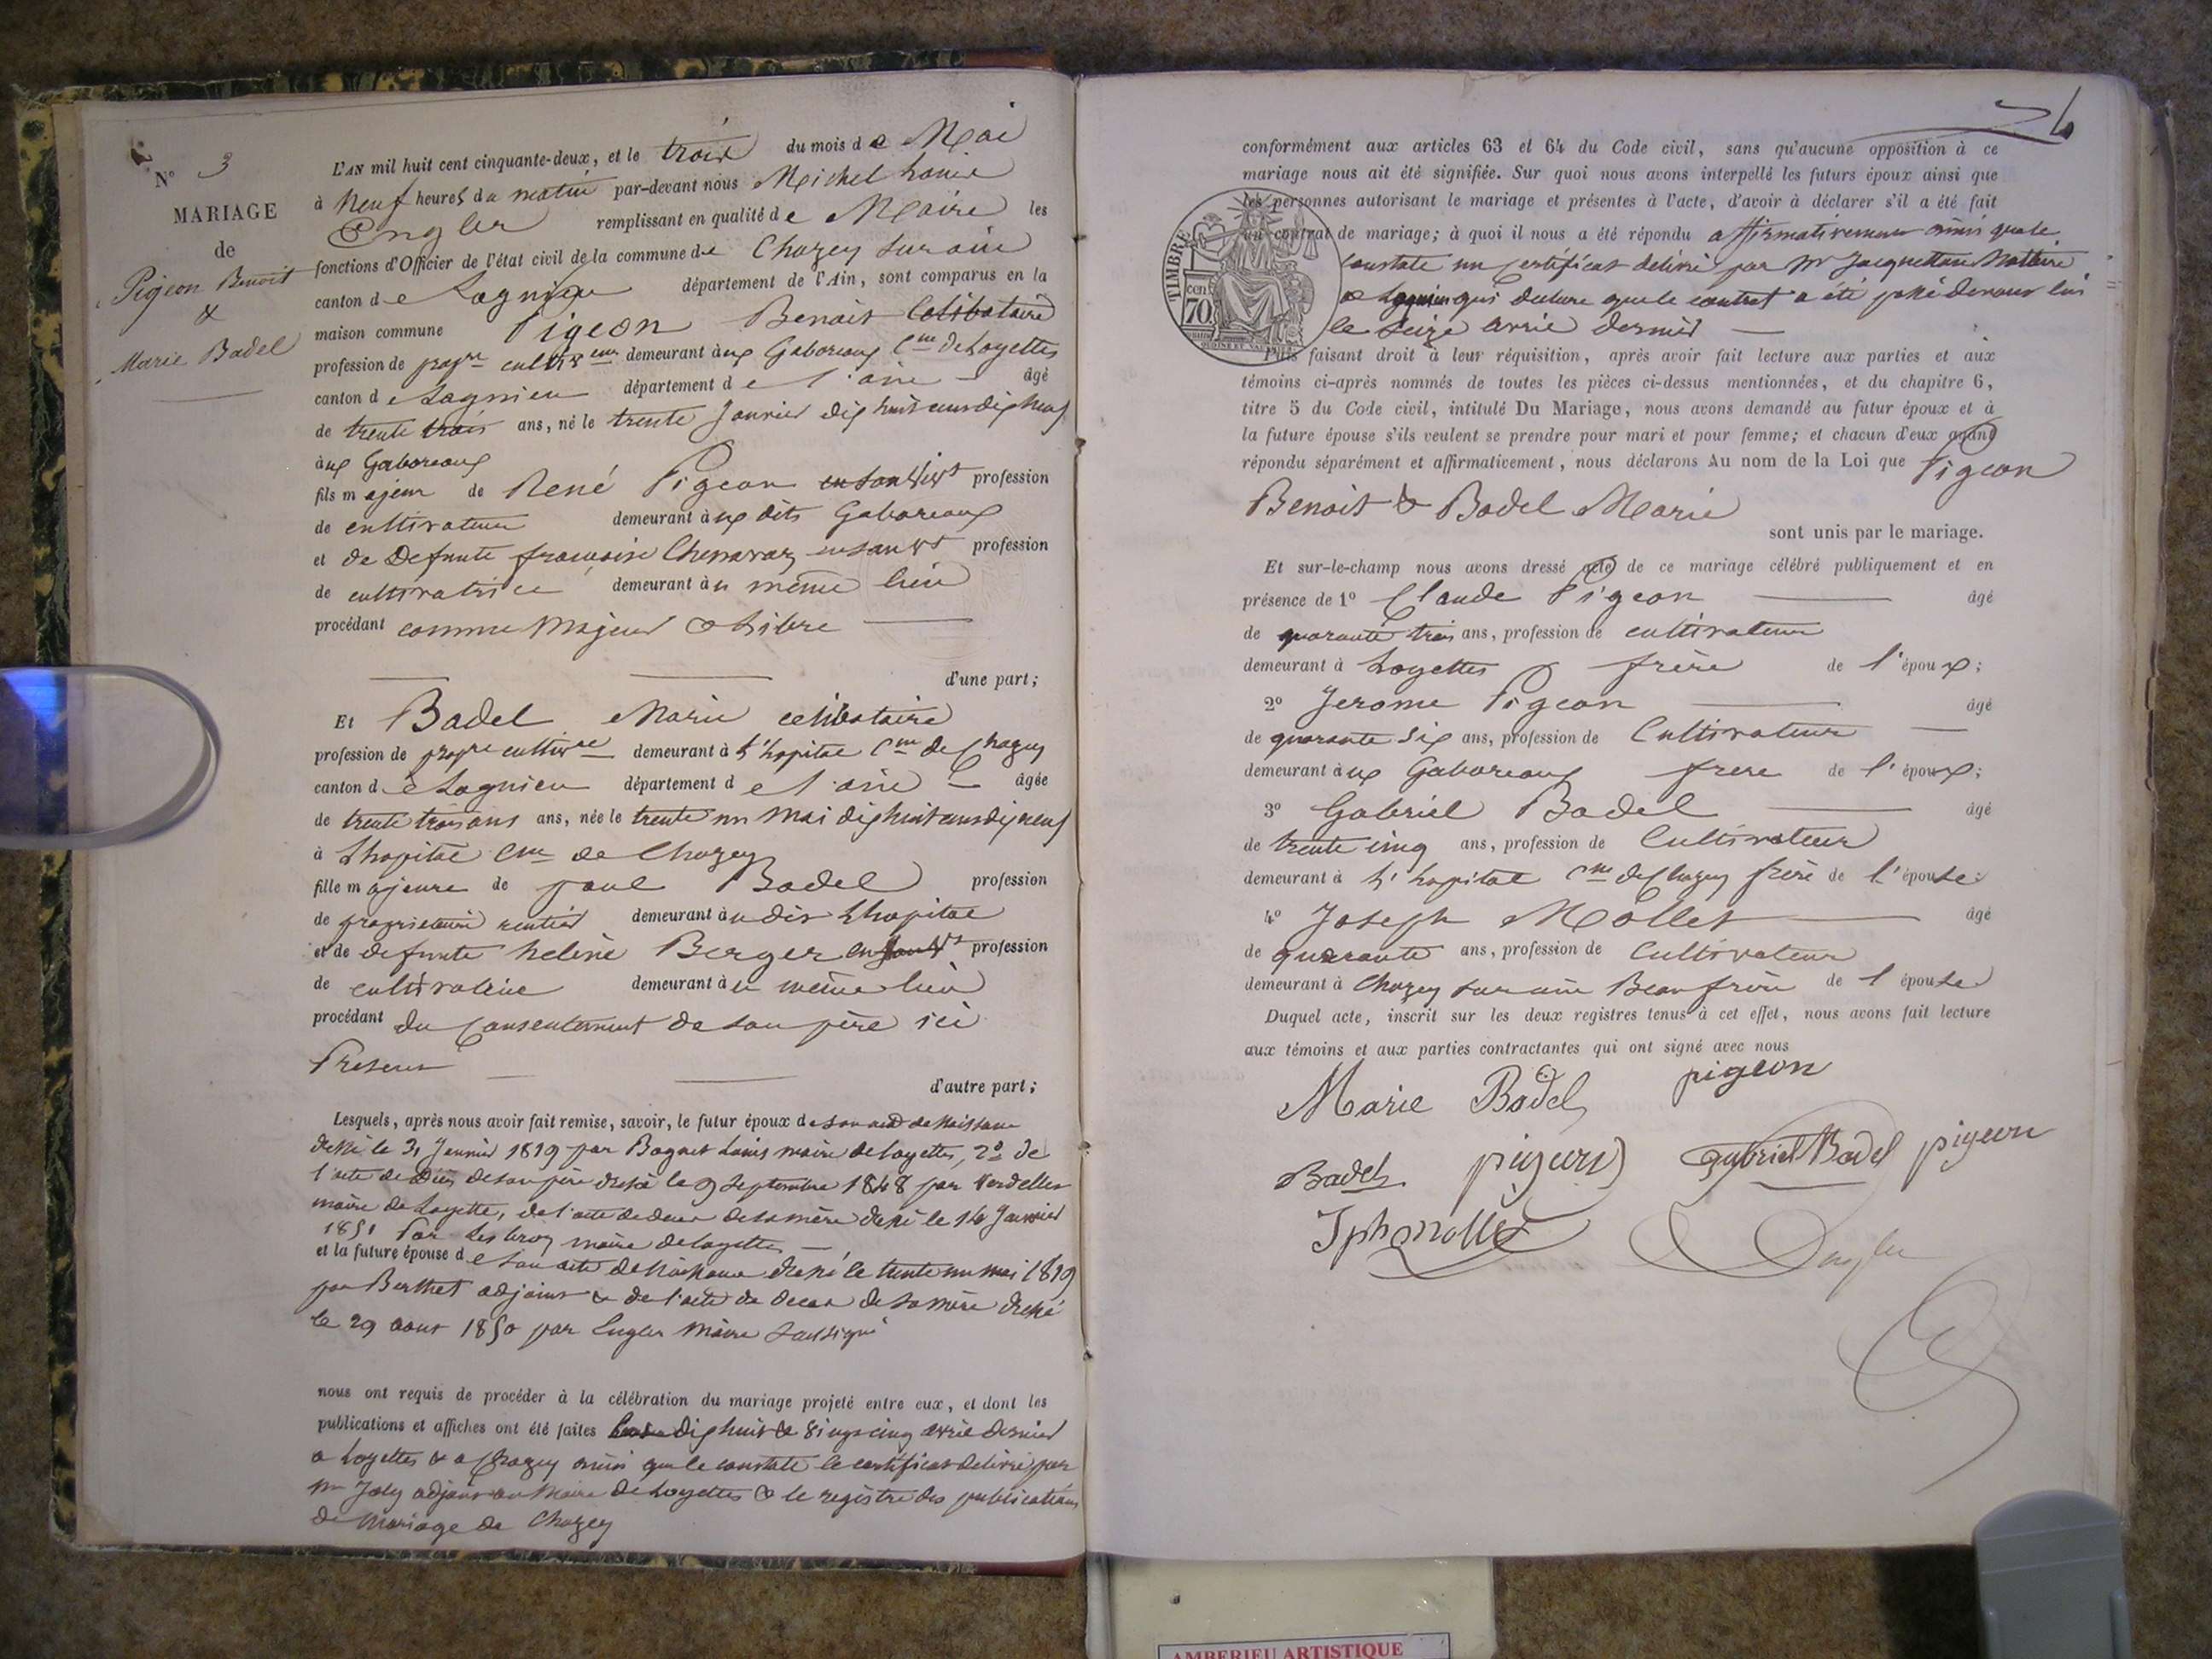 N° 3
MARIAGE
de
Pigeon Benoit
&
Marie Badel
L'AN mil huit cent cinquante-deux, et le trois du mois de Mai
à neuf heures du matin par-devant nous Michel Louis
Engler remplissant en qualité de Maire les
fonctions d'Officier de l'état civil de la commune de Chazey sur ain
canton de Lagnieu département de l'Ain, sont comparus en la
maison commune Pigeon Benoit Celibataire
profession de propre cultiveur demeurant aux Gaboreaux Cne de Loyettes
canton de Lagnieu département de l'ain âgé
de trente trois ans, né le trente Janvier dix huit cent dix neuf
aux Gaboreaux
fils majeur de René Pigeon en son vivt profession
de cultivateur demeurant aux dits Gaboreaux
et de Defunte françoise Chenavaz en son vt profession
de cultivatrice demeurant au même lieu
procédant comme Majeur & Libre
d'une part;
Et Badel Marie celibataire
profession de propre cultivce demeurant à L'hopital Cne de Chazey
canton de Lagnieu département de l'ain âgée
de trente trois ans ans, née le trente un mai dix huit cent dix neuf
à Lhopital Cne de Chazey
fille majeure de paul Badel profession
de proprietaire rentier demeurant au dit Lhopital
et de defunte helene Berger en son vt profession
de cultivatrice demeurant au même lieu
procédant du Consentement de son père ici
Present
d'autre part;
Lesquels, après nous avoir fait remise, savoir, le futur époux de son acte de Naissance
dressé le 31 Janvier 1819 par Bagnet Louis maire de Loyettes, 2° de
l'acte de Décès de son père dressé le 9 Septembre 1848 par Verdellet
maire de Loyette, de l'acte de deces de sa mère dressé le 16 Janvier
1851 Par maire de Loyettes
et la future épouse de son acte de Naissance dressé le trente un mai 1819
par Berthet adjoint & de l'acte de deces de sa mère dressé
le 29 aout 1850 par Engler Maire soussigné
nous ont requis de procéder à la célébration du mariage projeté entre eux, et dont les
publications et affiches ont été faites les dix huit & vingt cinq avril dernier
a Loyettes & a Chazey ainsi que le constate le certificat delivré par
Mr Joly adjoint au Maire de Loyettes & le registre des publications
de Mariage de Chazey
conformément aux articles 63 et 64 du Code civil, sans qu'aucune opposition à ce
mariage nous ait été signifiée. Sur quoi nous avons interpellé les futurs époux ainsi que
les personnes autorisant le mariage et présentes à l'acte, d'avoir à déclarer s'il a été fait
un contrat de mariage; à quoi il nous a été répondu affirmativement ainsi que le
constate un Certificat delivré par Mr Jacquettan Nottaire
a Lagnieu qui declare que le contrat a été passé devant lui
le seize avril dernier
TIMBRE
70 cen
Puis faisant droit à leur réquisition, après avoir fait lecture aux parties et aux
témoins ci-après nommés de toutes les pièces ci-dessus mentionnées, et du chapitre 6,
titre 5 du Code civil, intitulé Du Mariage, nous avons demandé au futur époux et à
la future épouse s'ils veulent se prendre pour mari et pour femme; et chacun d'eux ayant
répondu séparément et affirmativement, nous déclarons Au nom de la Loi que Pigeon
Benoit & Badel Marie
sont unis par le mariage.
Et sur-le-champ nous avons dressé acte de ce mariage célébré publiquement et en
présence de 1° Claude Pigeon âgé
de quarante trois ans, profession de cultivateur
demeurant à Loyettes frère de l'époux;
2° Jerome Pigeon âgé
de quarante six ans, profession de Cultivateur
demeurant aux Gaboreaux frere de l'époux;
3° Gabriel Badel âgé
de trente cinq ans, profession de Cultivateur
demeurant à L'hopital Cne de Chazey frère de l'épouse
4° Joseph Mollet âgé
de quarante ans, profession de Cultivateur
demeurant à Chazey sur ain Beau frère de l'épouse
Duquel acte, inscrit sur les deux registres tenus à cet effet, nous avons fait lecture
aux témoins et aux parties contractantes qui ont signé avec nous
Marie Badel pigeon
Badel pigeon Gabriel Badel pigeon
Jph mollet Engler
AMBERIEU ARTISTIQUE